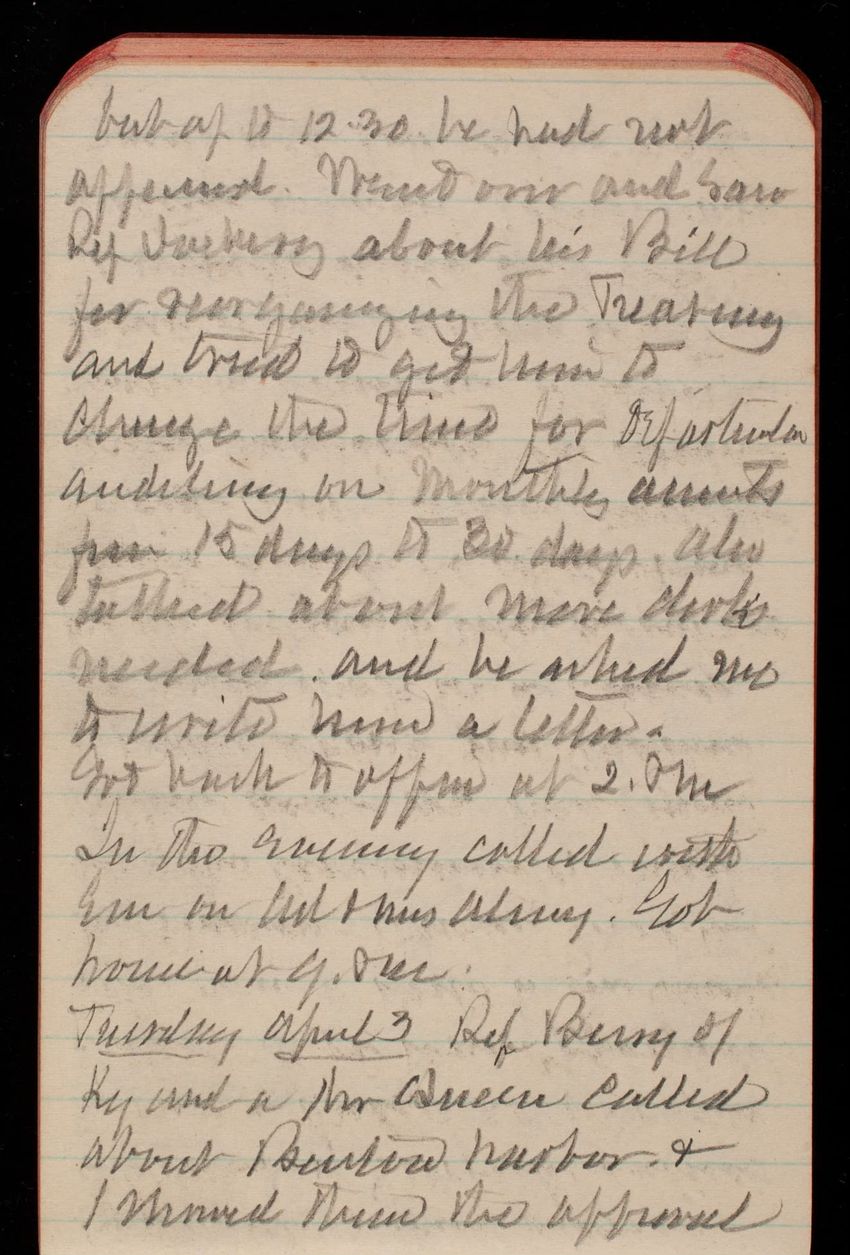 but up to 12.30 he had not
appeared. Went over and saw
Rep Dockery about his Bill
for reorganizing the Treasury
and tried to get him to
change the time for Departmental
auditing on Monthly accounts
from 15 days to 30 days. Also
talked about more clerks
needed. and he asked me
to write him a letter.
Got back to office at 2.
In the Evening called with
Em on Col & Mrs Abney. Got
home at 9.
Tuesday April 3 Rep Berry of
Ky and a Mr Queen called
about Benton harbor. &
I showed them the approval